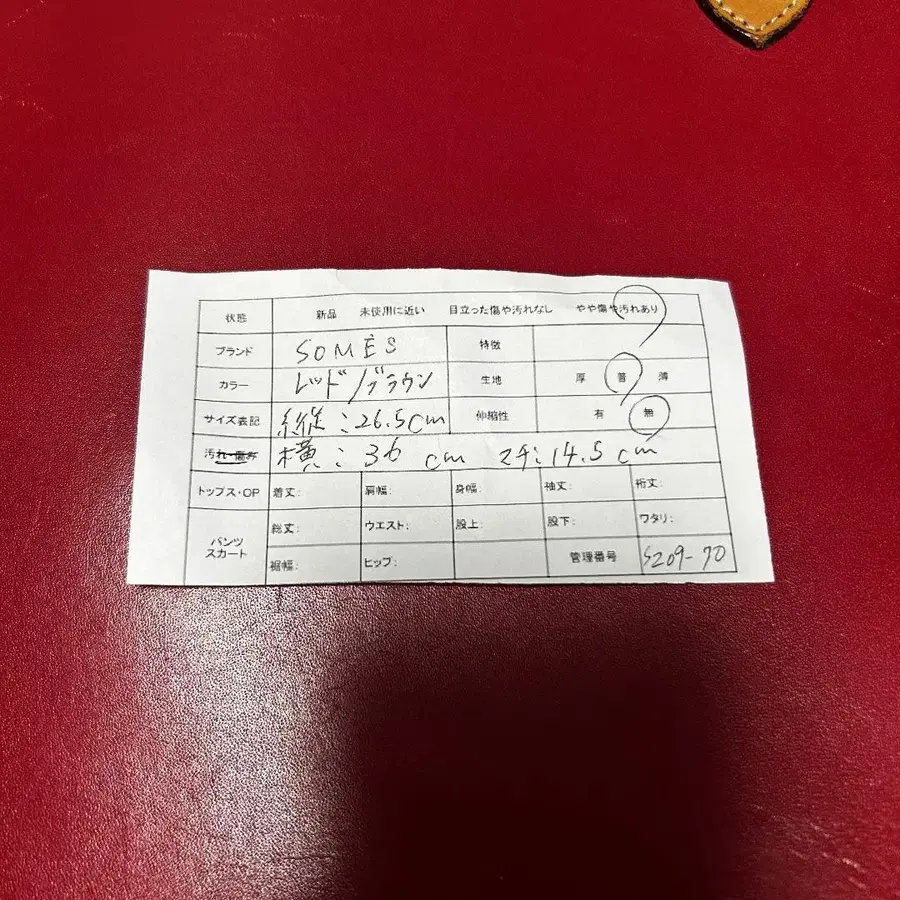 状態 新品 未使用に近い 目立った傷や汚れなし やや傷や汚れあり
ブランド SOMÈS 特徴
カラー レッド/ブラウン 生地 厚 普 薄
サイズ表記 縦:26.5cm 伸縮性 有 無
汚れ・傷み 横:36cm マチ:14.5cm
トップス・OP 着丈: 肩幅: 身幅: 袖丈: 裄丈:
パンツ スカート 総丈: ウエスト: 股上: 股下: ワタリ:
裾幅: ヒップ: 管理番号 S209-70